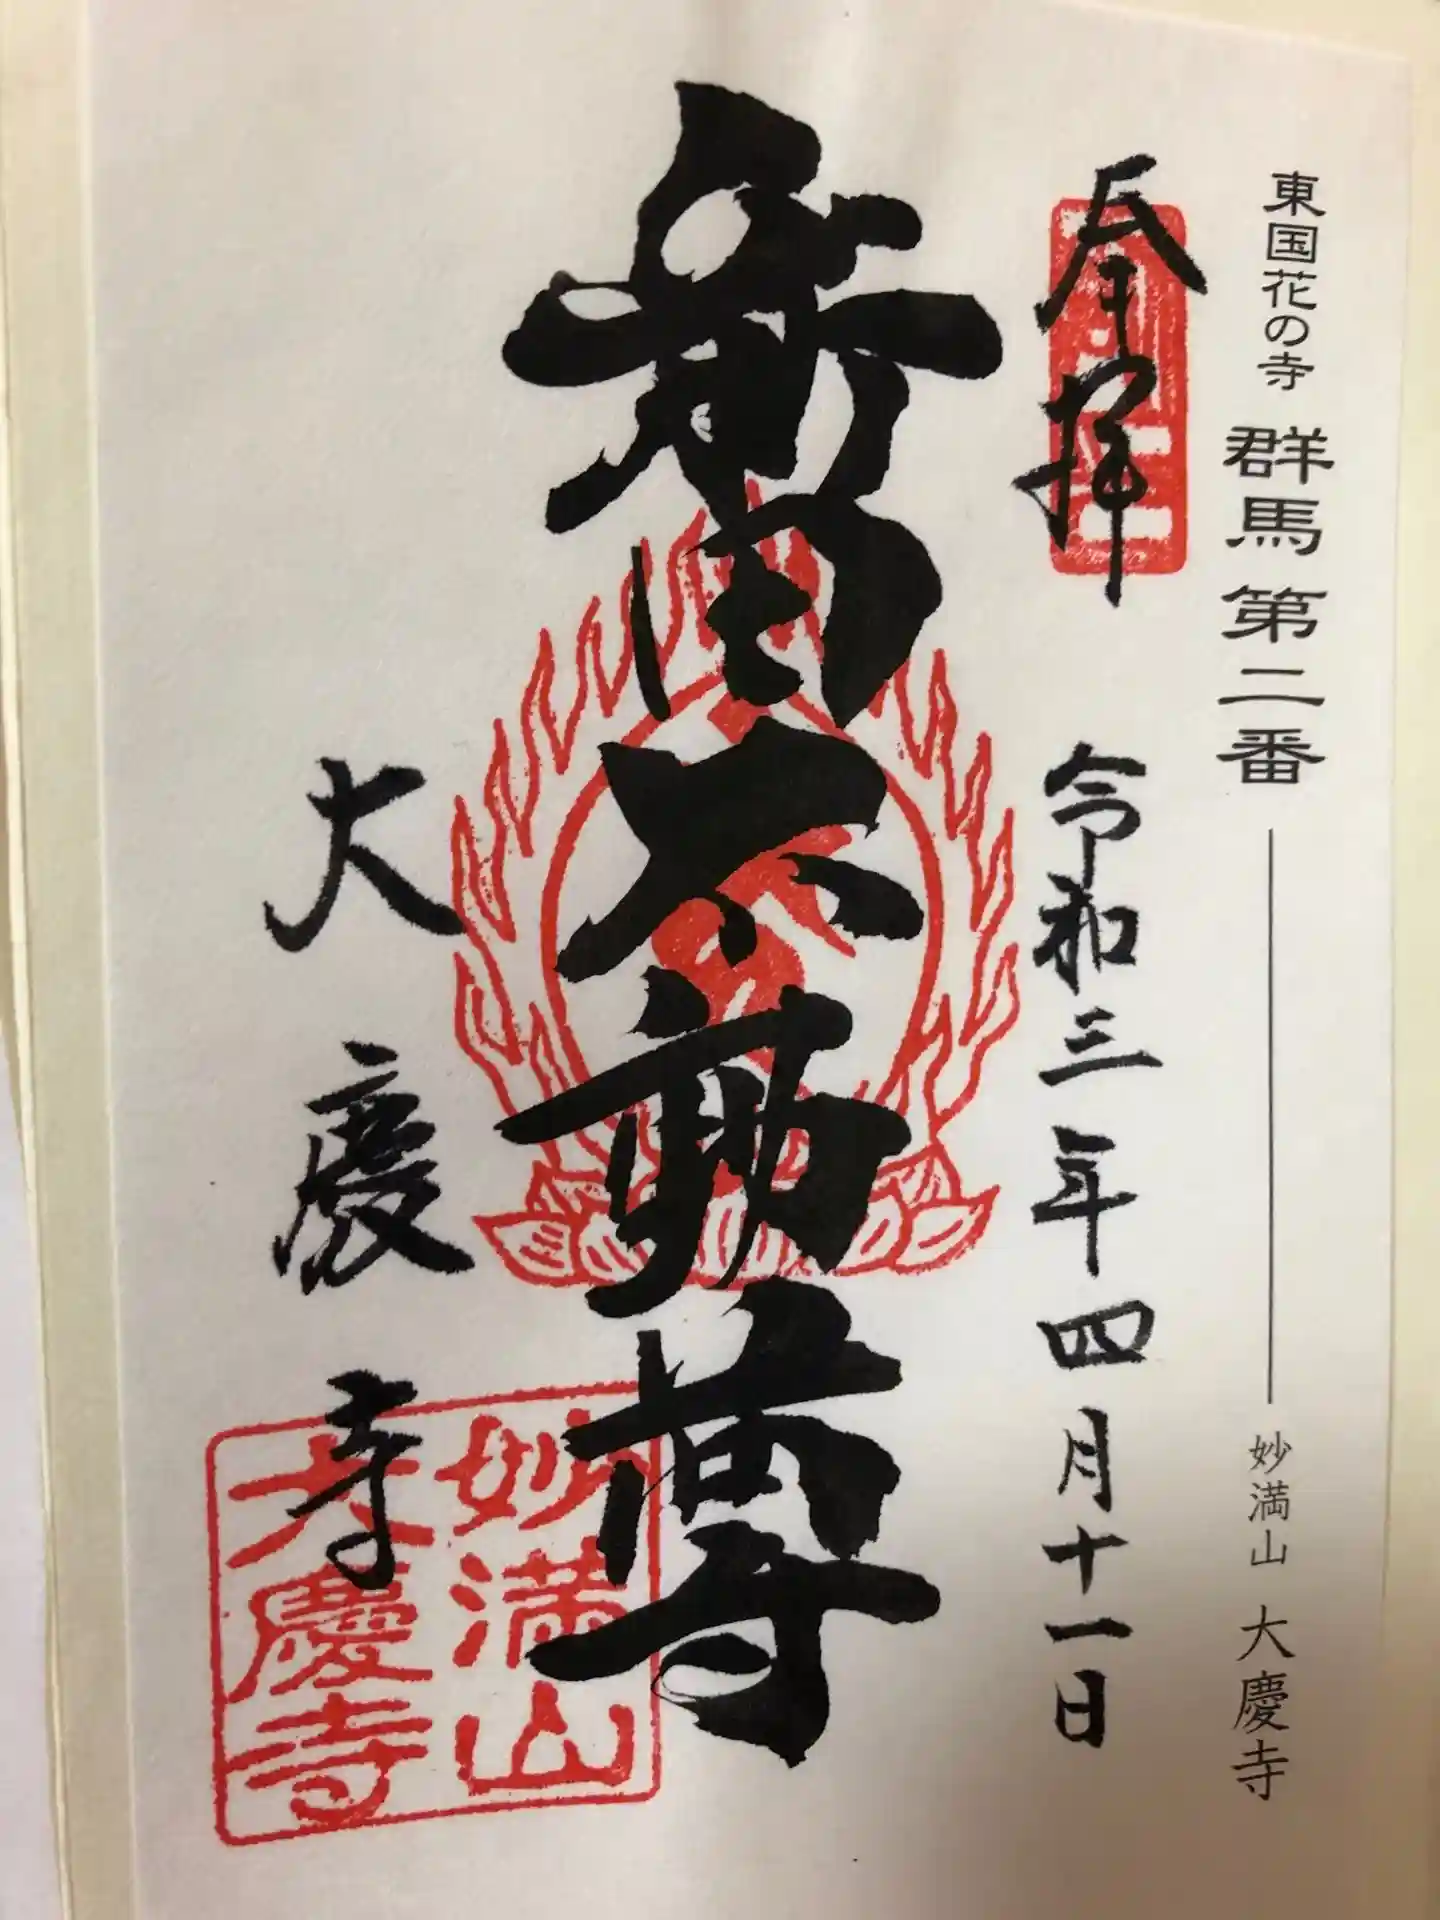 東国花の寺 群馬第二番 妙満山 大慶寺
奉拝 令和三年四月十一日
新田不動尊
大慶寺
妙満山
大慶寺